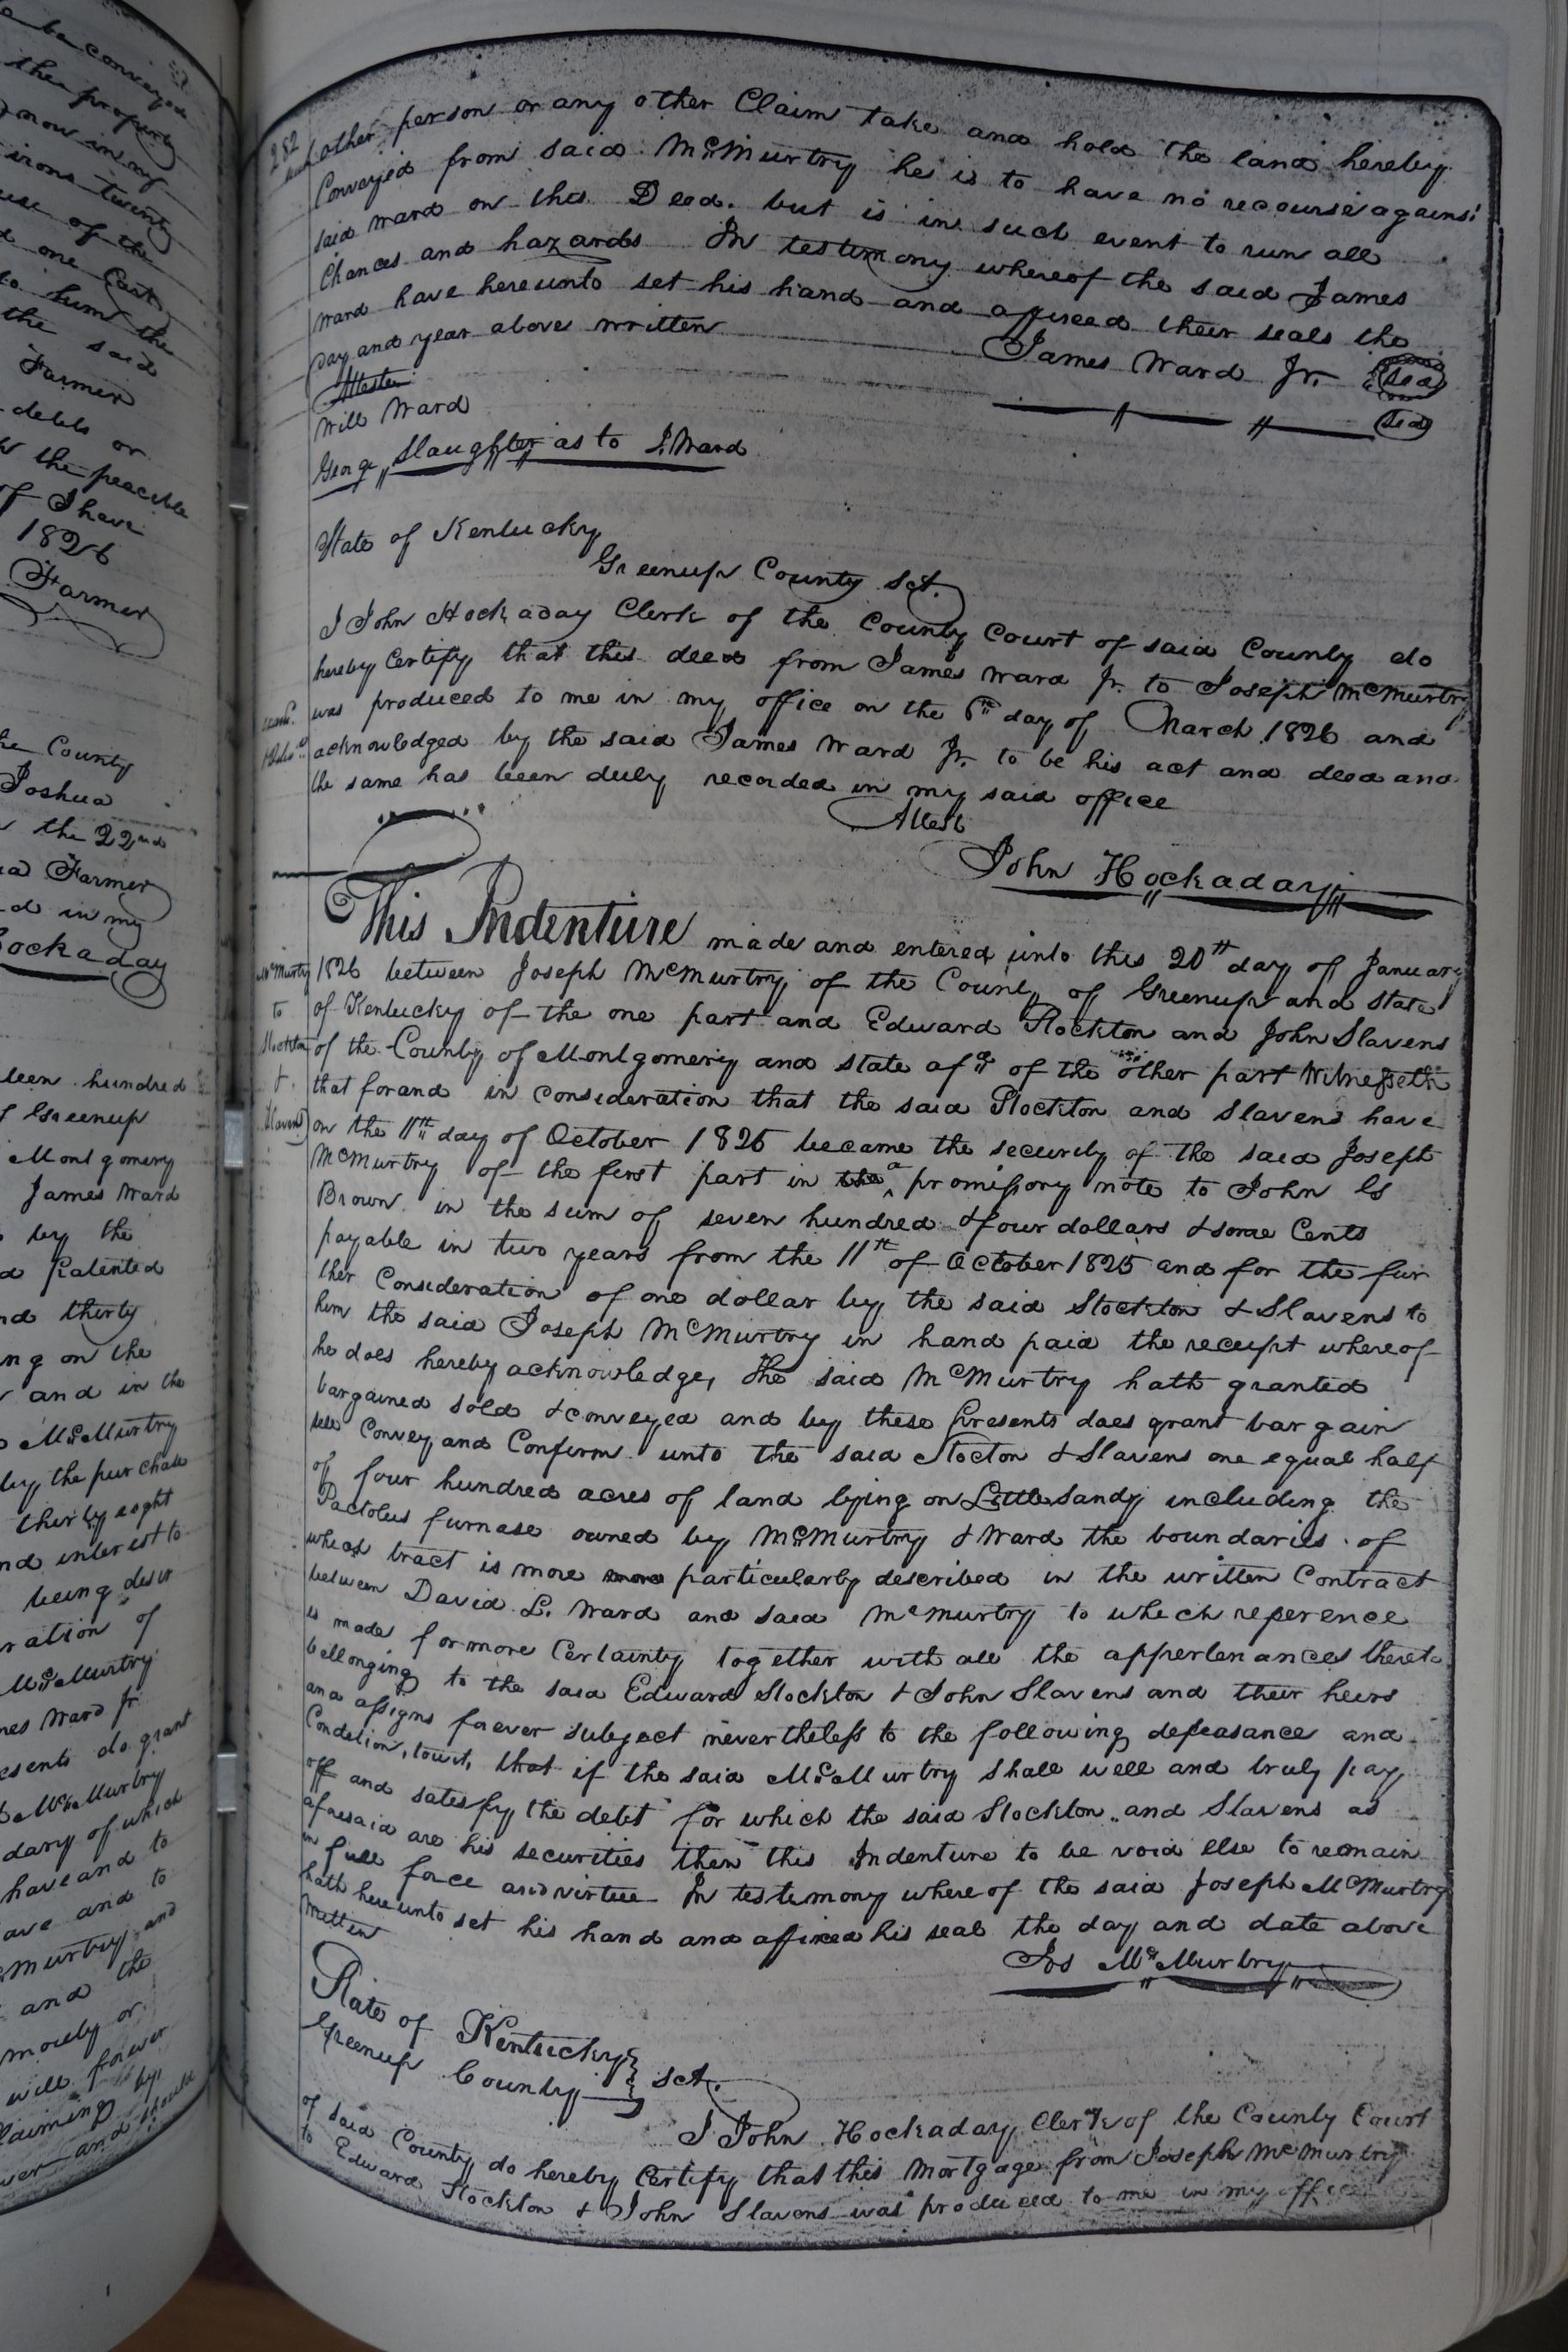 be conveyed
the property
now in my
irons twenty
use of the
d one Cart
to him the
the said
Farmer
debts or
the peacible
of I have
1826
Farmer
the County
Joshua
the 22nd
Farmer
d in my
Hockaday
teen hundred
Greenup
Montgomery
James Ward
by the
Patented
nd thirty
ng on the
and in the
McMurtry
by the purchase
thirty eight
nd interest to
being desir
ration of
McMurtry
mes Ward Jr
esents do grant
McMurtry
dary of which
have and to
ave and to
McMurtry and
and the
mously or
will forever
claiming by
ever and should
282
other person or any other Claim take and hold the land hereby
Conveyed from said McMurtry he is to have no recourse against
said Ward on this Deed. but is in such event to run all
Chances and hazards In testimony whereof the said James
Ward have hereunto set his hand and affixed their seals the
day and year above written
James Ward Jr. Seal
Seal
Attest
Will Ward
George Slaughter as to J. Ward
State of Kentucky
Greenup County Sct.
I John Hockaday Clerk of the County Court of said County do
hereby Certify that this deed from James Ward Jr. to Joseph McMurtry
was produced to me in my office on the 6th day of March 1826 and
acknowledged by the said James Ward Jr. to be his act and deed and
the same has been duly recorded in my said office
Attest
John Hockaday
McMurtry
to
Stockton
&
Slavens
This Indenture made and entered into this 20th day of January
1826 between Joseph McMurtry of the County of Greenup and State
of Kentucky of the one part and Edward Stockton and John Slavens
of the County of Montgomery and state afsd of the other part Witnesseth
that for and in consideration that the said Stockton and Slavens have
on the 11th day of October 1825 became the security of the said Joseph
McMurtry of the first part in the a promissory note to John G
Brown in the sum of seven hundred & four dollars & some Cents
payable in two years from the 11th of October 1825 and for the fur
ther Consideration of one dollar by the said Stockton & Slavens to
him the said Joseph McMurtry in hand paid the receipt whereof
he does hereby acknowledge, the said McMurtry hath granted
bargained sold & conveyed and by these presents does grant bargain
sell Convey and Confirm unto the said Stocton & Slavens one equal half
of four hundred acres of land lying on Little Sandy including the
Pactolus furnase owned by McMurtry & Ward the boundaries of
which tract is more more particularly described in the written Contract
between David L. Ward and said McMurtry to which reference
is made for more Certainty together with all the appertenances thereto
bellonging to the said Edward Stockton & John Slavens and their heirs
and assigns forever subject nevertheless to the following defeasance and
Condition, towit, that if the said McMurtry shall well and truly pay
off and satesfy the debt for which the said Stockton and Slavens as
aforesaid are his securities then this Indenture to be void else to remain
in full force and virtue In testimony whereof the said Joseph McMurtry
hath hereunto set his hand and affixed his seal the day and date above
written
Jos McMurtry
State of Kentucky
Greenup County } sct.
I John Hockaday Clerk of the County Court
of said County do hereby Certify that this Mortgage from Joseph McMurtry
to Edward Stockton & John Slavens was produced to me in my office